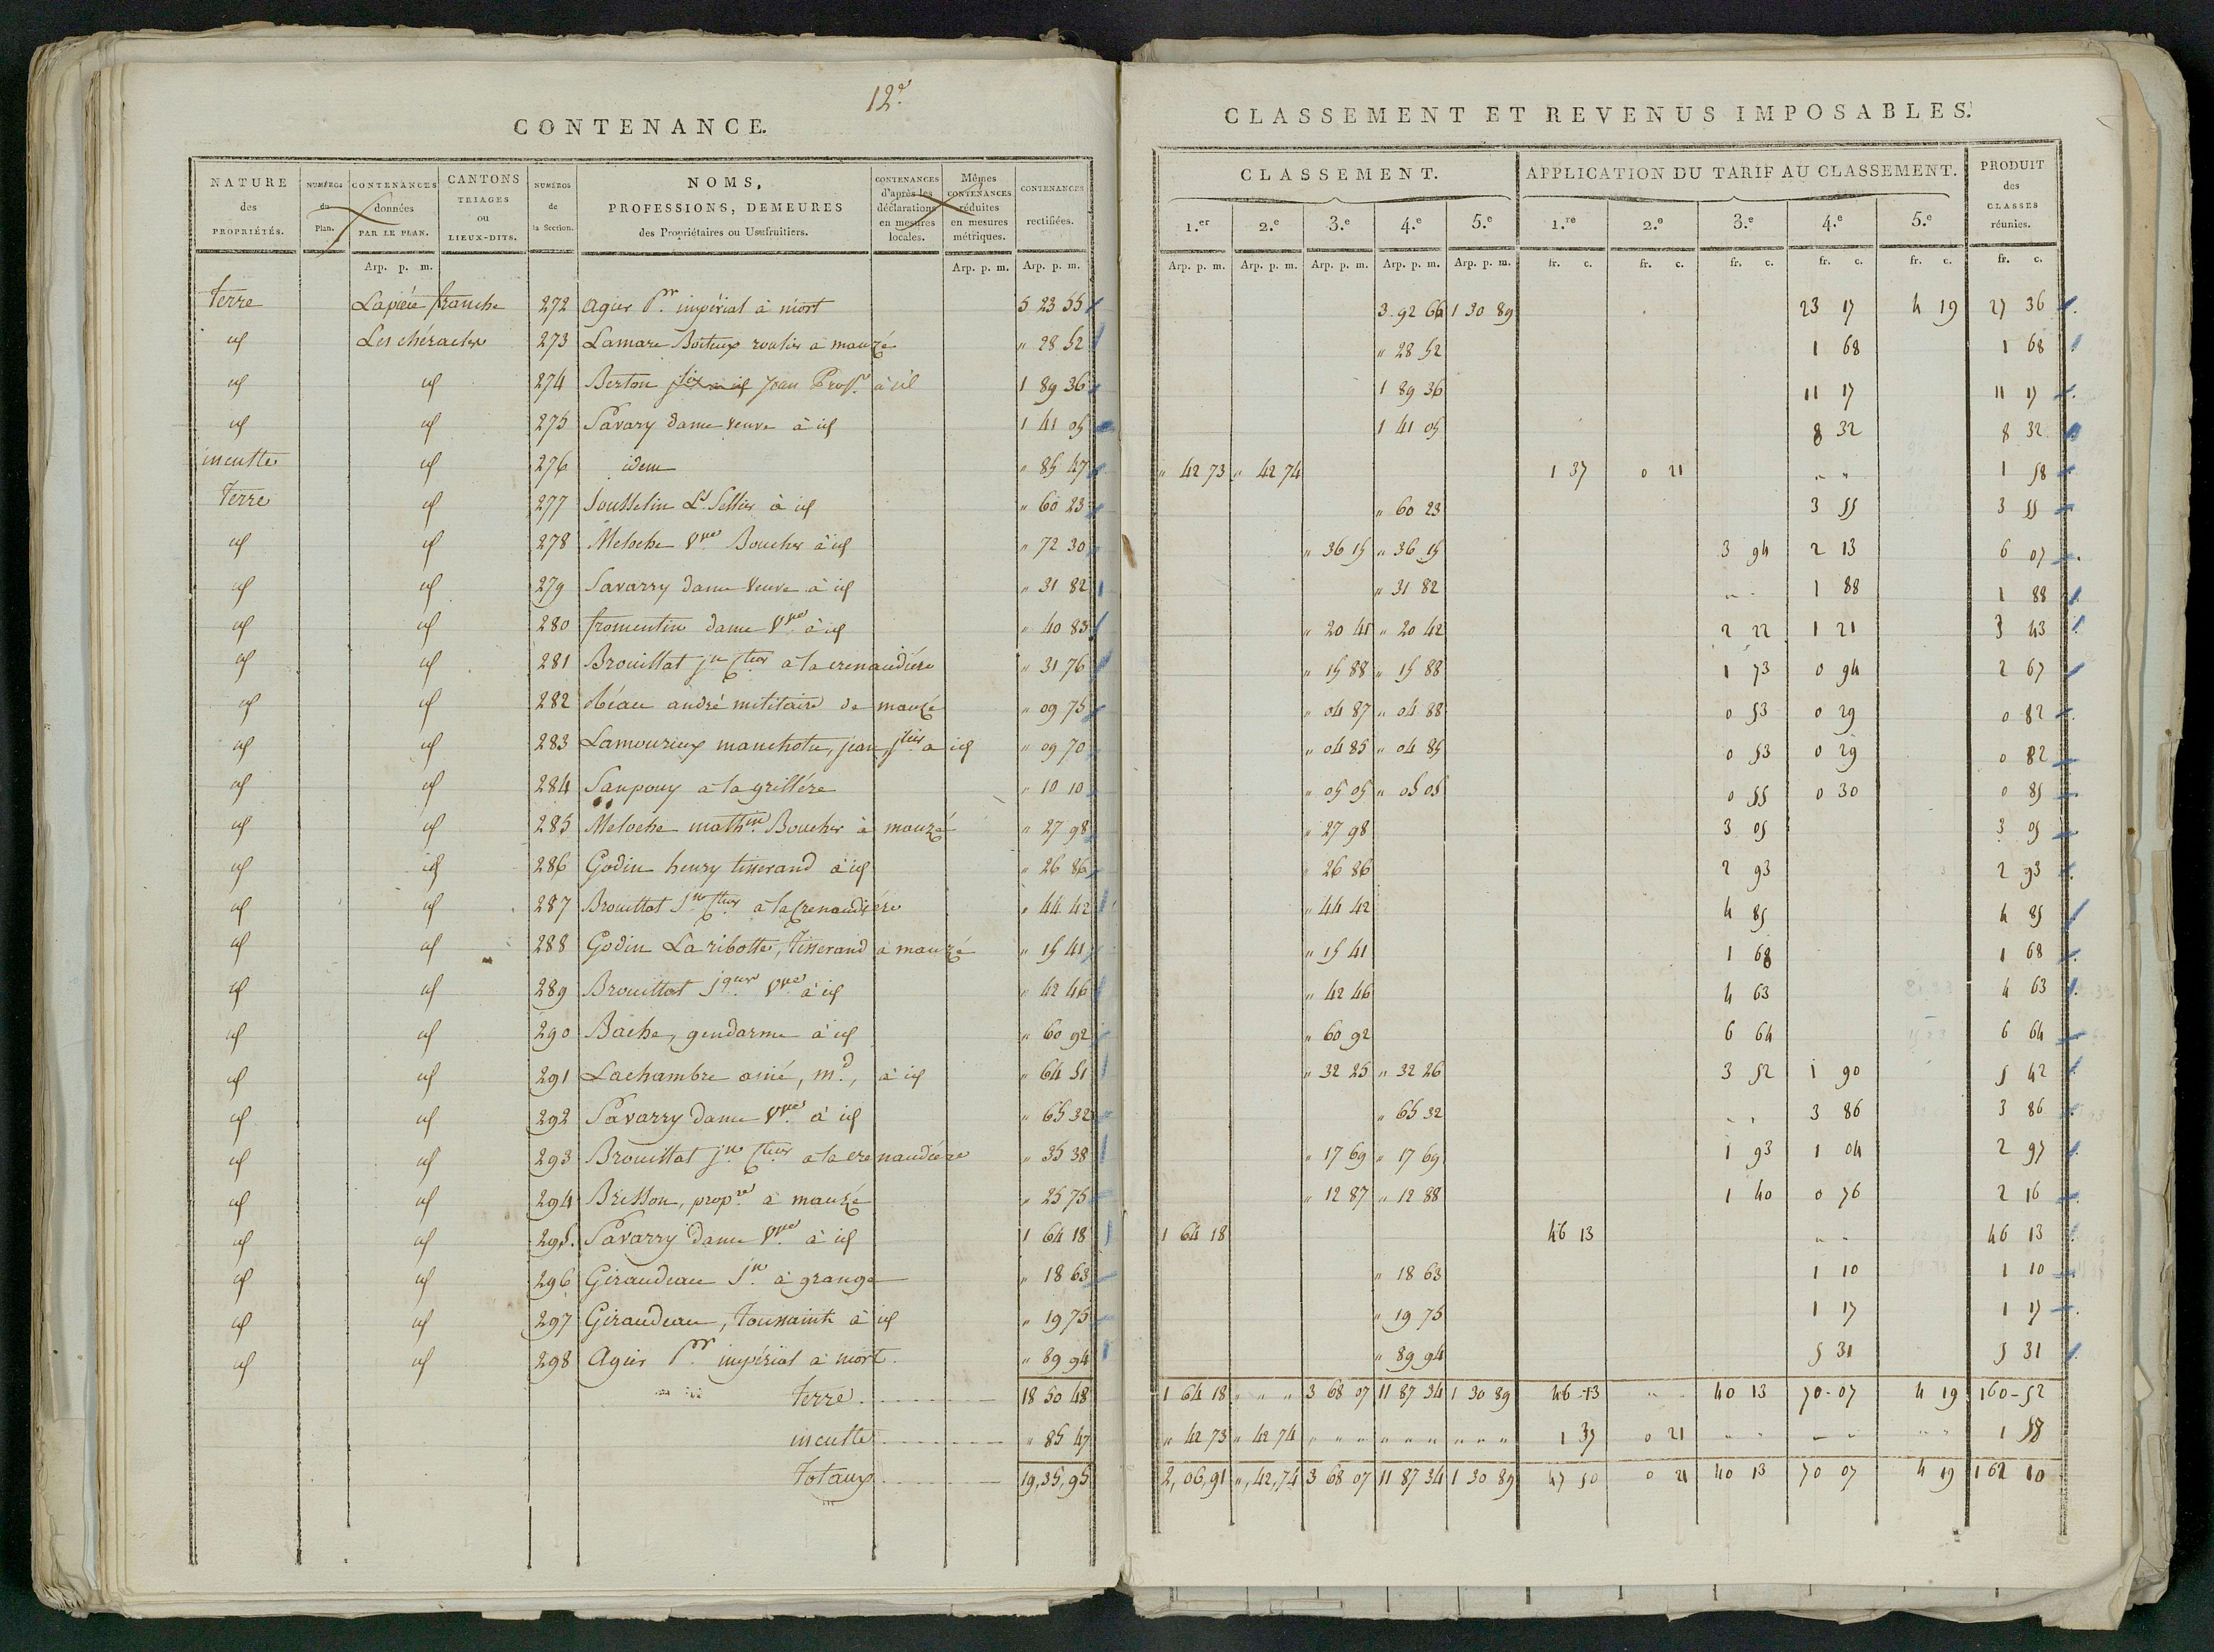 12e
CONTENANCE.
NATURE des PROPRIÉTÉS. | NUMÉROS du Plan. | CONTENANCES données PAR LE PLAN. | CANTONS TRIAGES ou LIEUX-DITS. | NUMÉROS de la Section. | NOMS, PROFESSIONS, DEMEURES des Propriétaires ou Usufruitiers. | CONTENANCES d'après les déclarations en mesures locales. | Mêmes CONTENANCES réduites en mesures métriques. | CONTENANCES rectifiées.
Arp. p. m. | Arp. p. m. | Arp. p. m.
terre Lapièce franche 272 agier Pr. impérial à niort 5 23 55
id Les chéraches 273 Lamare Boiteux roulier à mauzé " 28 52
id id 274 Berton Jean Proffr. à id 1 89 36
id id 275 Savary dame veuve à id 1 41 05
inculte id 276 idem " 85 47
terre id 277 Lt. Sellier à id " 60 23
id id 278 Meloche Vve Boucher à id " 72 30
id id 279 Savarry dame veuve à id " 31 82
id id 280 fromentin dame Vve à id " 40 83
id id 281 Brouillat jn a la crenaudiére " 31 76
id id 282 andré militaire de mauzé " 09 75
id id 283 Lamourieux manchotu, jean a id " 09 70
id id 284 Saupouy a la grillére " 10 10
id id 285 Meloche mathin Boucher à mauzé " 27 98
id id 286 Godin henry tisserand à id " 26 86
id id 287 Brouillat Jn a la Crenaudiére " 44 42
id id 288 Godin La ribotte, tisserand à mauzé " 15 41
id id 289 Brouillat Jques Vve à id " 42 46
id id 290 Bache, gendarme à id " 60 92
id id 291 Lachambre ainé, md, à id " 64 51
id id 292 Savarry dame Vve à id " 65 32
id id 293 Brouillat jn a la crenaudiére " 35 38
id id 294 Brisson, propre à mauzé " 25 75
id id 295. Savarry dame Vve à id 1 64 18
id id 296 Giraudeau Jn à grange " 18 63
id id 297 Giraudeau, toussaint à id " 19 75
id id 298 Agier Pr. impérial à niort. " 89 94
terre 18 50 48
inculte " 85 47
totaux 19,35,95
CLASSEMENT ET REVENUS IMPOSABLES.
CLASSEMENT. | APPLICATION DU TARIF AU CLASSEMENT. | PRODUIT des CLASSES réunies.
1.er | 2.e | 3.e | 4.e | 5.e | 1.re | 2.e | 3.e | 4.e | 5.e
Arp. p. m. | Arp. p. m. | Arp. p. m. | Arp. p. m. | Arp. p. m. | fr. c. | fr. c. | fr. c. | fr. c. | fr. c. | fr. c.
3 92 66 1 30 89 23 17 4 19 27 36
" 28 52 1 68 1 68
1 89 36 11 17 11 17
1 41 05 8 32 8 32
" 42 73 " 42 74 1 37 0 21 " " 1 58
" 60 23 3 55 3 55
" 36 15 " 36 15 3 94 2 13 6 07
" 31 82 " " 1 88 1 88
" 20 41 " 20 42 2 22 1 21 3 43
" 15 88 " 15 88 1 73 0 94 2 67
" 04 87 " 04 88 0 53 0 29 0 82
" 04 85 " 04 85 0 53 0 29 0 82
" 05 05 " 05 05 0 55 0 30 0 85
" 27 98 3 05 3 05
" 26 86 2 93 2 93
" 44 42 4 85 4 85
" 15 41 1 68 1 68
" 42 46 4 63 4 63
" 60 92 6 64 6 64
" 32 25 " 32 26 3 52 1 90 5 42
" 65 32 " " 3 86 3 86
" 17 69 " 17 69 1 93 1 04 2 97
" 12 87 " 12 88 1 40 0 76 2 16
1 64 18 46 13 " " 46 13
" 18 63 1 10 1 10
" 19 75 1 17 1 17
" 89 94 5 31 5 31
1 64 18 " " " 3 68 07 11 87 34 1 30 89 46-13 " " 40 13 70-07 4 19 160-52
" 42 73 " 42 74 " " " " " " " " " 1 37 0 21 " " " " " " 1 58
2,06,91 ",42,74 3 68 07 11 87 34 1 30 89 47 50 0 21 40 13 70 07 4 19 162 10